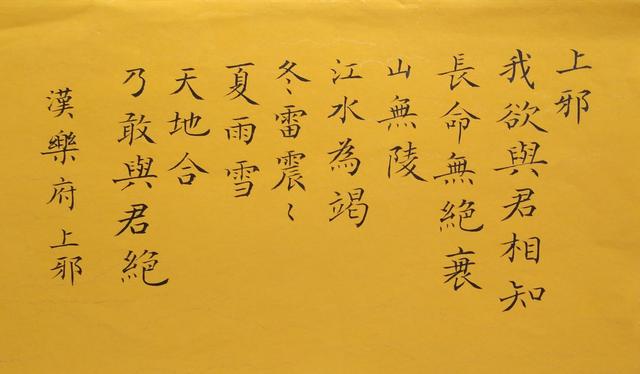 上邪
我欲與君相知
長命無絕衰
山無陵
江水為竭
冬雷震〻
夏雨雪
天地合
乃敢與君絕
漢樂府上邪